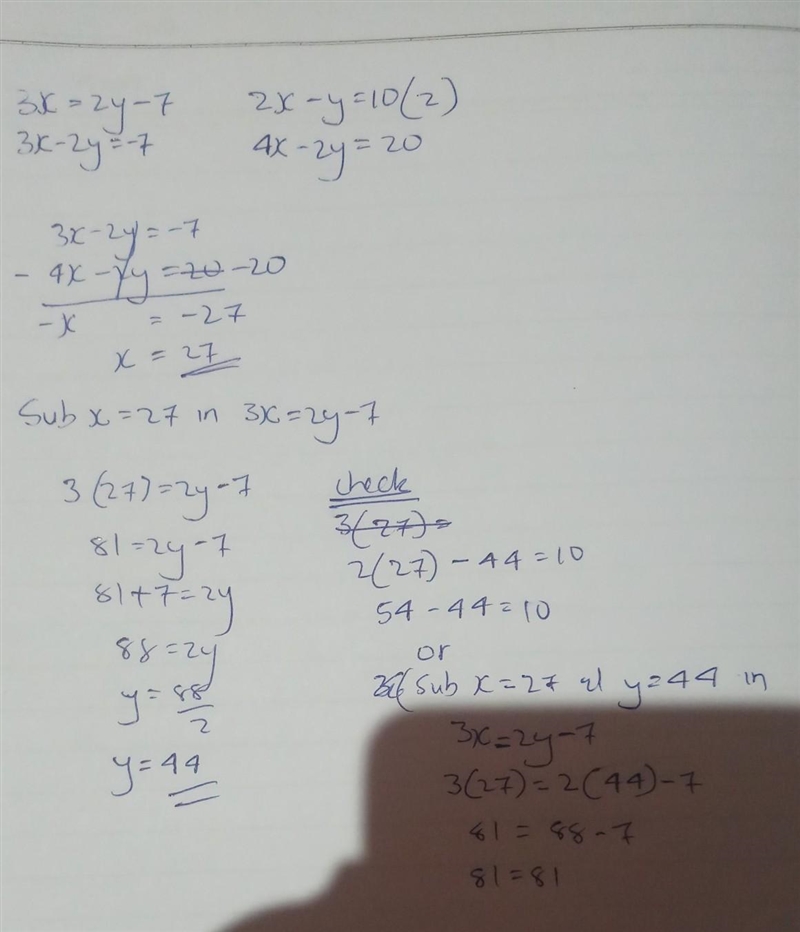 3x = 2y - 7
3x - 2y = -7
2x - y = 10 (2)
4x - 2y = 20
3x - 2y = -7
- 4x - 2y = 20 -20
-x = -27
x = 27
Sub x = 27 in 3x = 2y - 7
3 (27) = 2y - 7
81 = 2y - 7
81 + 7 = 2y
88 = 2y
y = 88/2
y = 44
check
3(27) =
2(27) - 44 = 10
54 - 44 = 10
or
Sub x = 27 y = 44 in
3x = 2y - 7
3(27) = 2(44) - 7
81 = 88 - 7
81 = 81